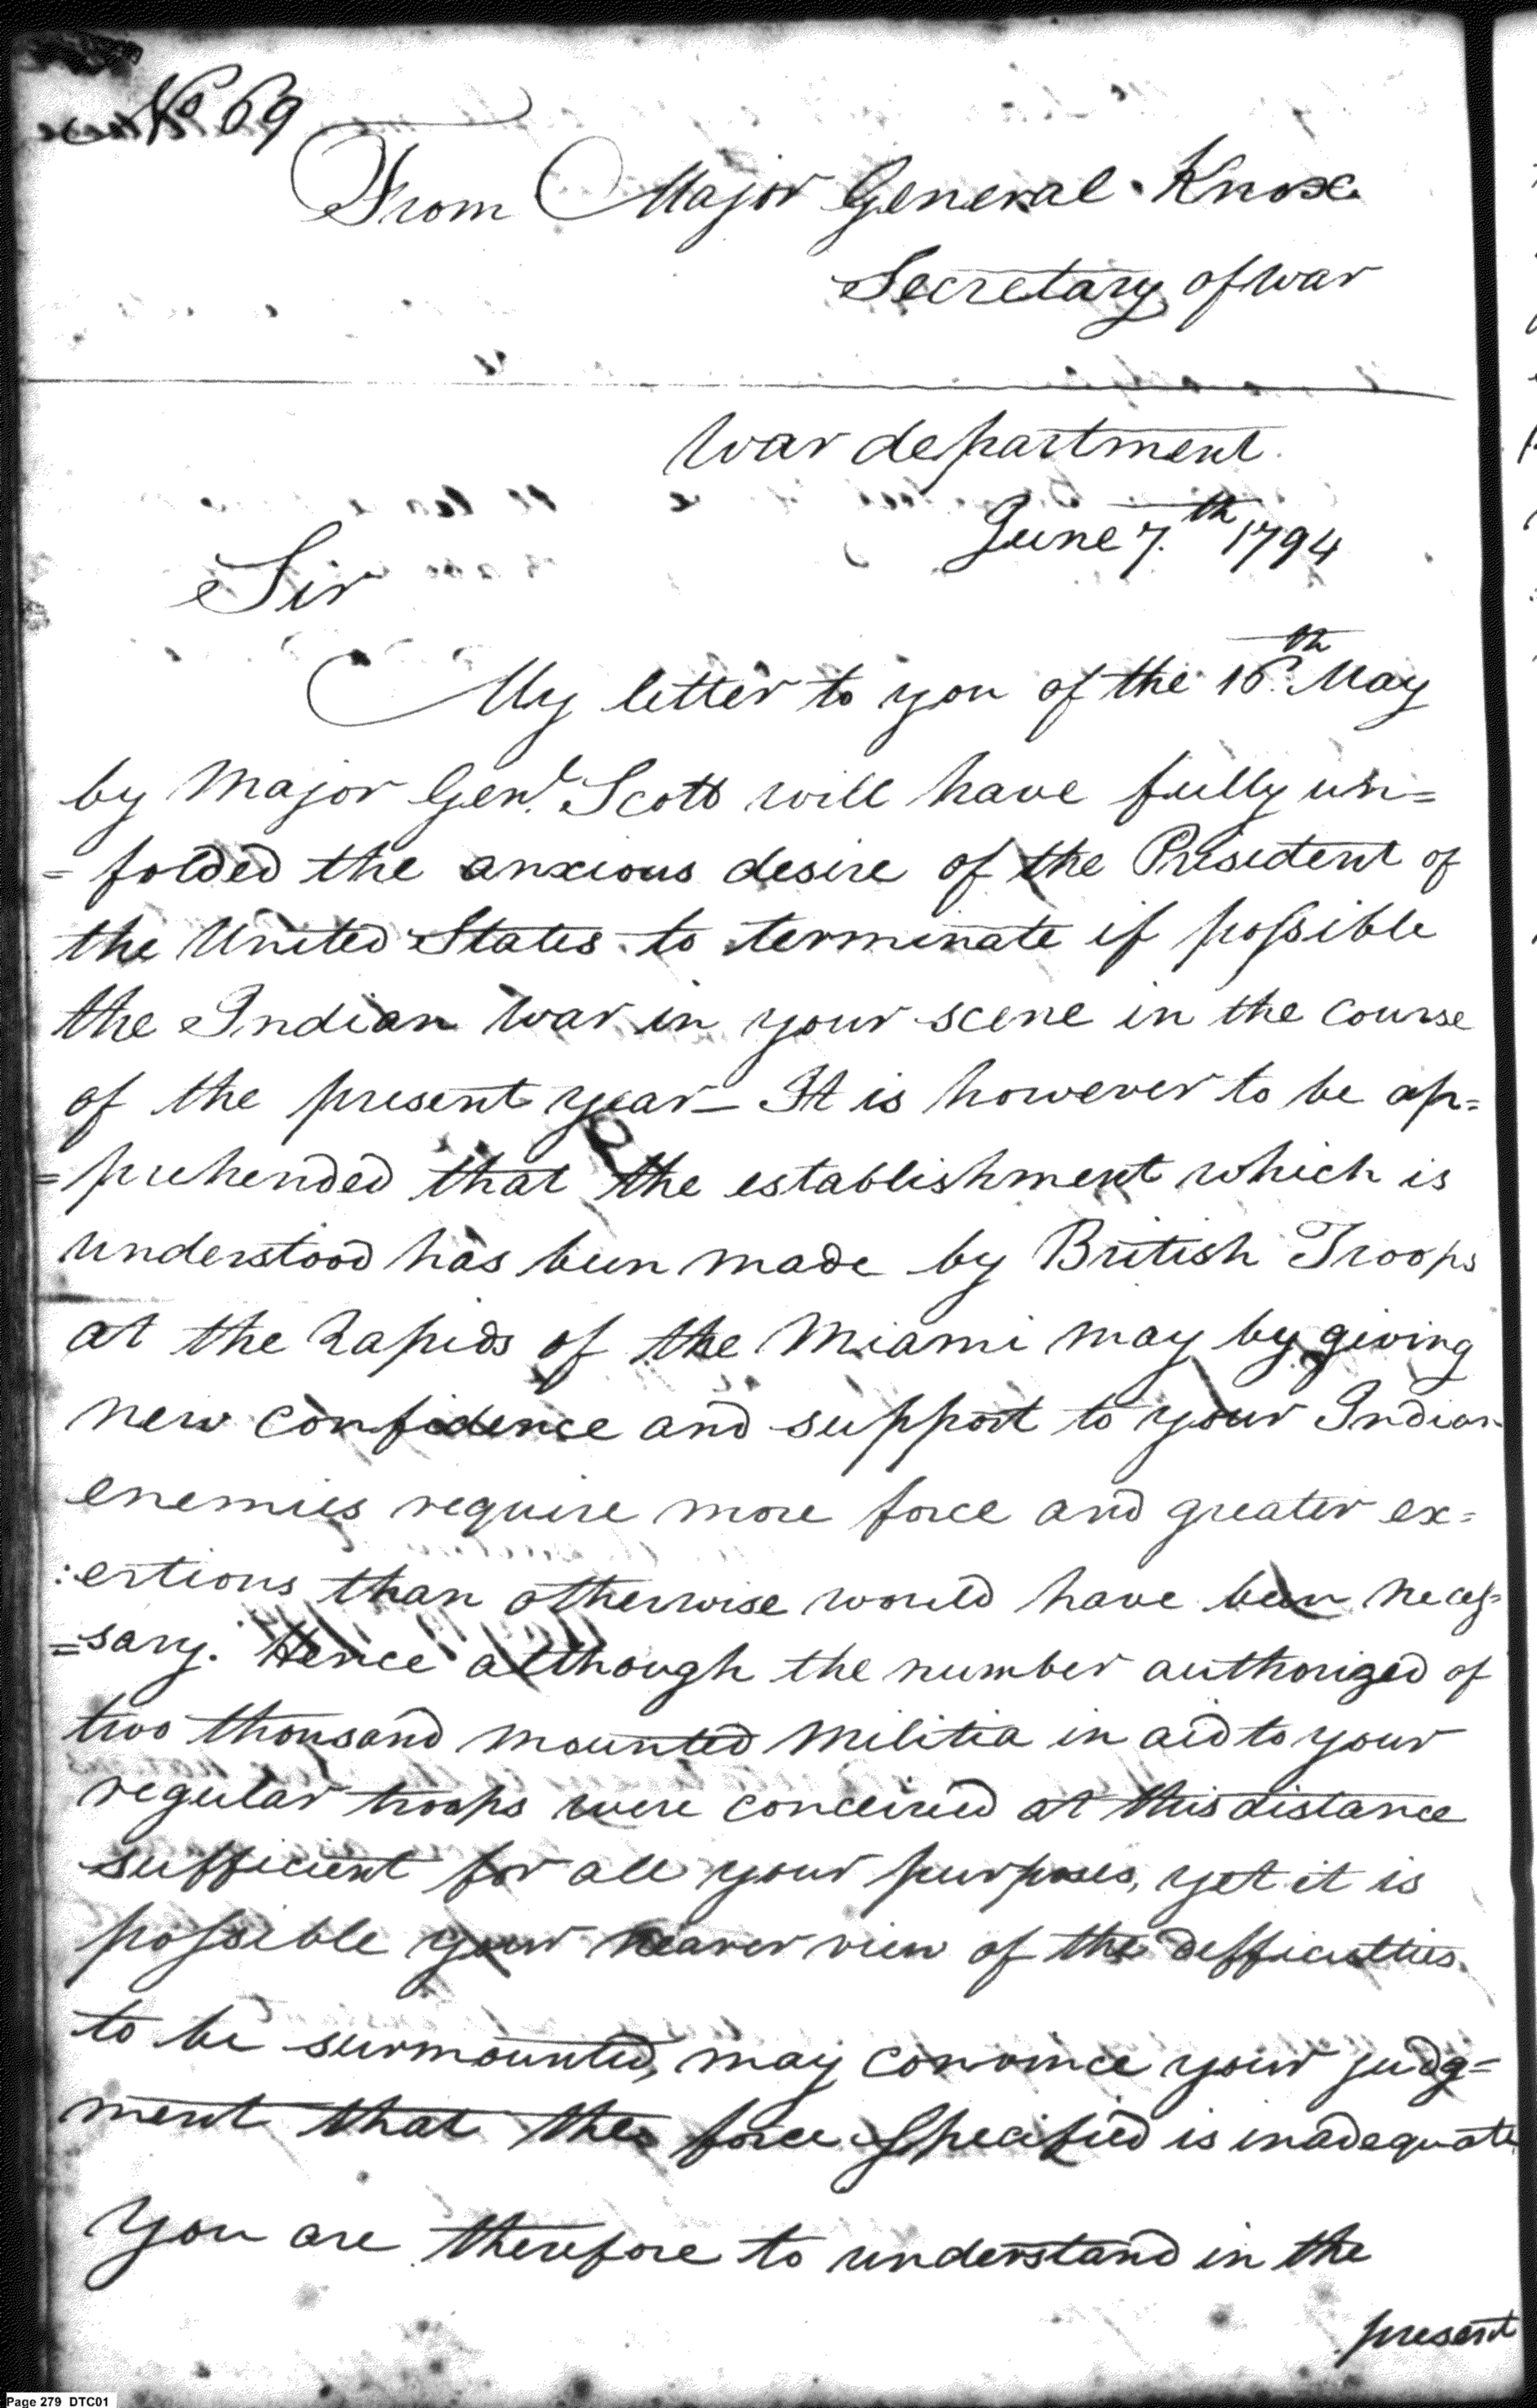 No 69
From Major General Knox
Secretary of war
War department.
June 7.th 1794
Sir
My letter to you of the 16th May
by Major Genl. Scott will have fully un=
=folded the anxious desire of the President of
the United States to terminate if possible
the Indian War in your scene in the course
of the present year— It is however to be ap=
=prehended that the establishment which is
understood has been made by British Troops
at the Rapids of the Miami may by giving
new confidence and support to your Indian
enemies require more force and greater ex=
:ertions than otherwise would have been neces=
=sary. Hence although the number authorized of
two thousand mounted Militia in aid to your
regular troops were conceived at this distance
sufficient for all your purposes, yet it is
possible your nearer view of the difficulties
to be surmounted, may convince your judg=
ment that the force specified is inadequate
You are therefore to understand in the
present
Page 279 DTC01